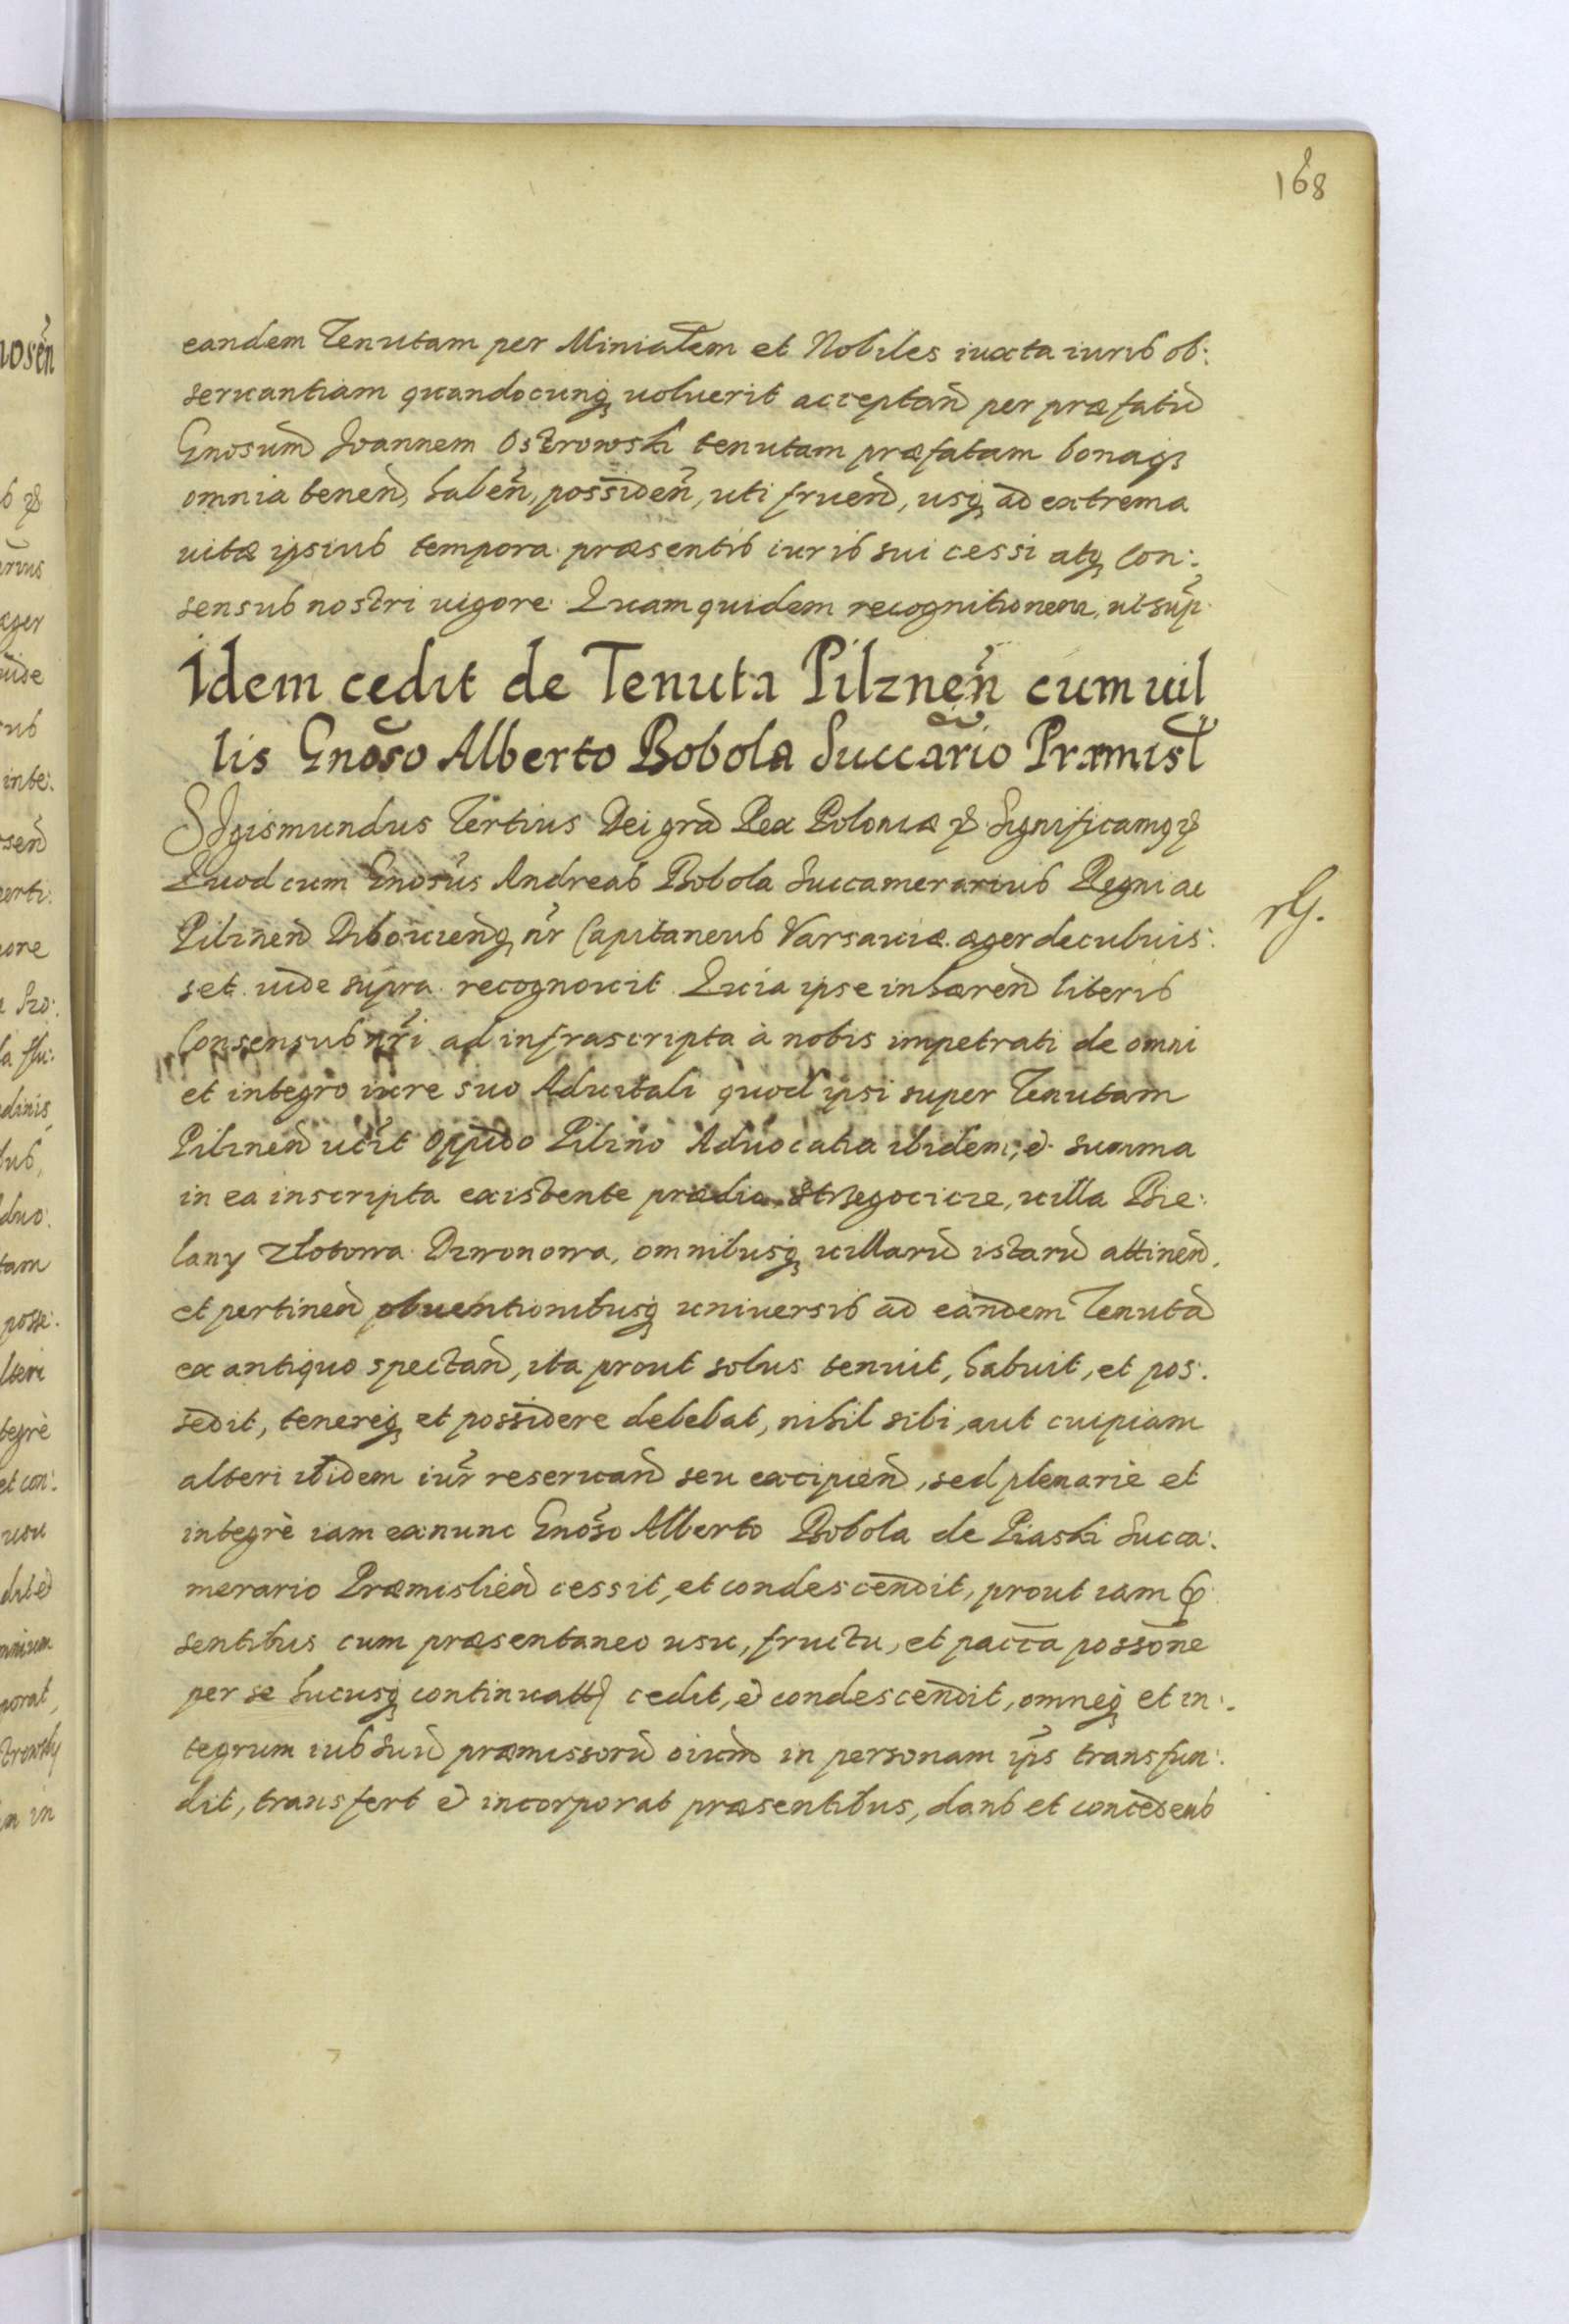 168
eandem Tenutam per Miniałem et Nobiles iuxta iuris ob:
seruantiam quandocunq uoluerit acceptand per præfatū
Gnosum Joannem Ostrowski tenutam præfatam bonaq
omnia tenend, haben, possiden, uti fruend, usq ad extrema
uitæ ipsius tempora præsentis iuris sui cessi atq Con:
sensus nostri uigore. Quam quidem recognitionem, ut sup.
Idem cedit de Tenuta Pilznen cum uil
lis Gnoso Alberto Bobola Succario Præmisl
SIgismundus Tertius Dei gra Rex Poloniæ & Significamq &
Quod cum Gnosus Andreas Bobola Succamerarius Regni ac
Pilznen nr Capitaneus Varsauiæ æger decubuis:
set uide supra recognouit. Quia ipse inhæren literis
Consensus nri ad infrascripta à nobis impetrati de omni
et integro iure suo Aduitali quod ipsi super Tenutam
Pilznen ućit oppido Pilzno Aduocatia ibidem, et summa
in ea inscripta existente prædio Strzegocicze, uilla Bie:
lany Zlotowa Dzwonowa, omnibusq uillarū istarū attinen,
et pertinen obuentionibusq uniuersis ad eandem Tenutā
ex antiquo spectan, ita prout solus tenuit, habuit, et pos:
sedit, tenereq et possidere debebat, nihil sibi, aut cuipiam
alteri ibidem iur reseruand seu excipiend, sed plenariè et
integrè iam ex nunc Gnoso Alberto Bobola de Piaski Succa:
merario Præmislien cessit, et condescendit, prout iam p
sentibus cum præsentaneo usu, fructu, et pacca possone
per se hucusq continuatt cedit, et condescendit, omneq et in:
tegrum ius suū præmissorū oium in personam ips transfun:
dit, transfert et incorporat præsentibus, dans et concedens